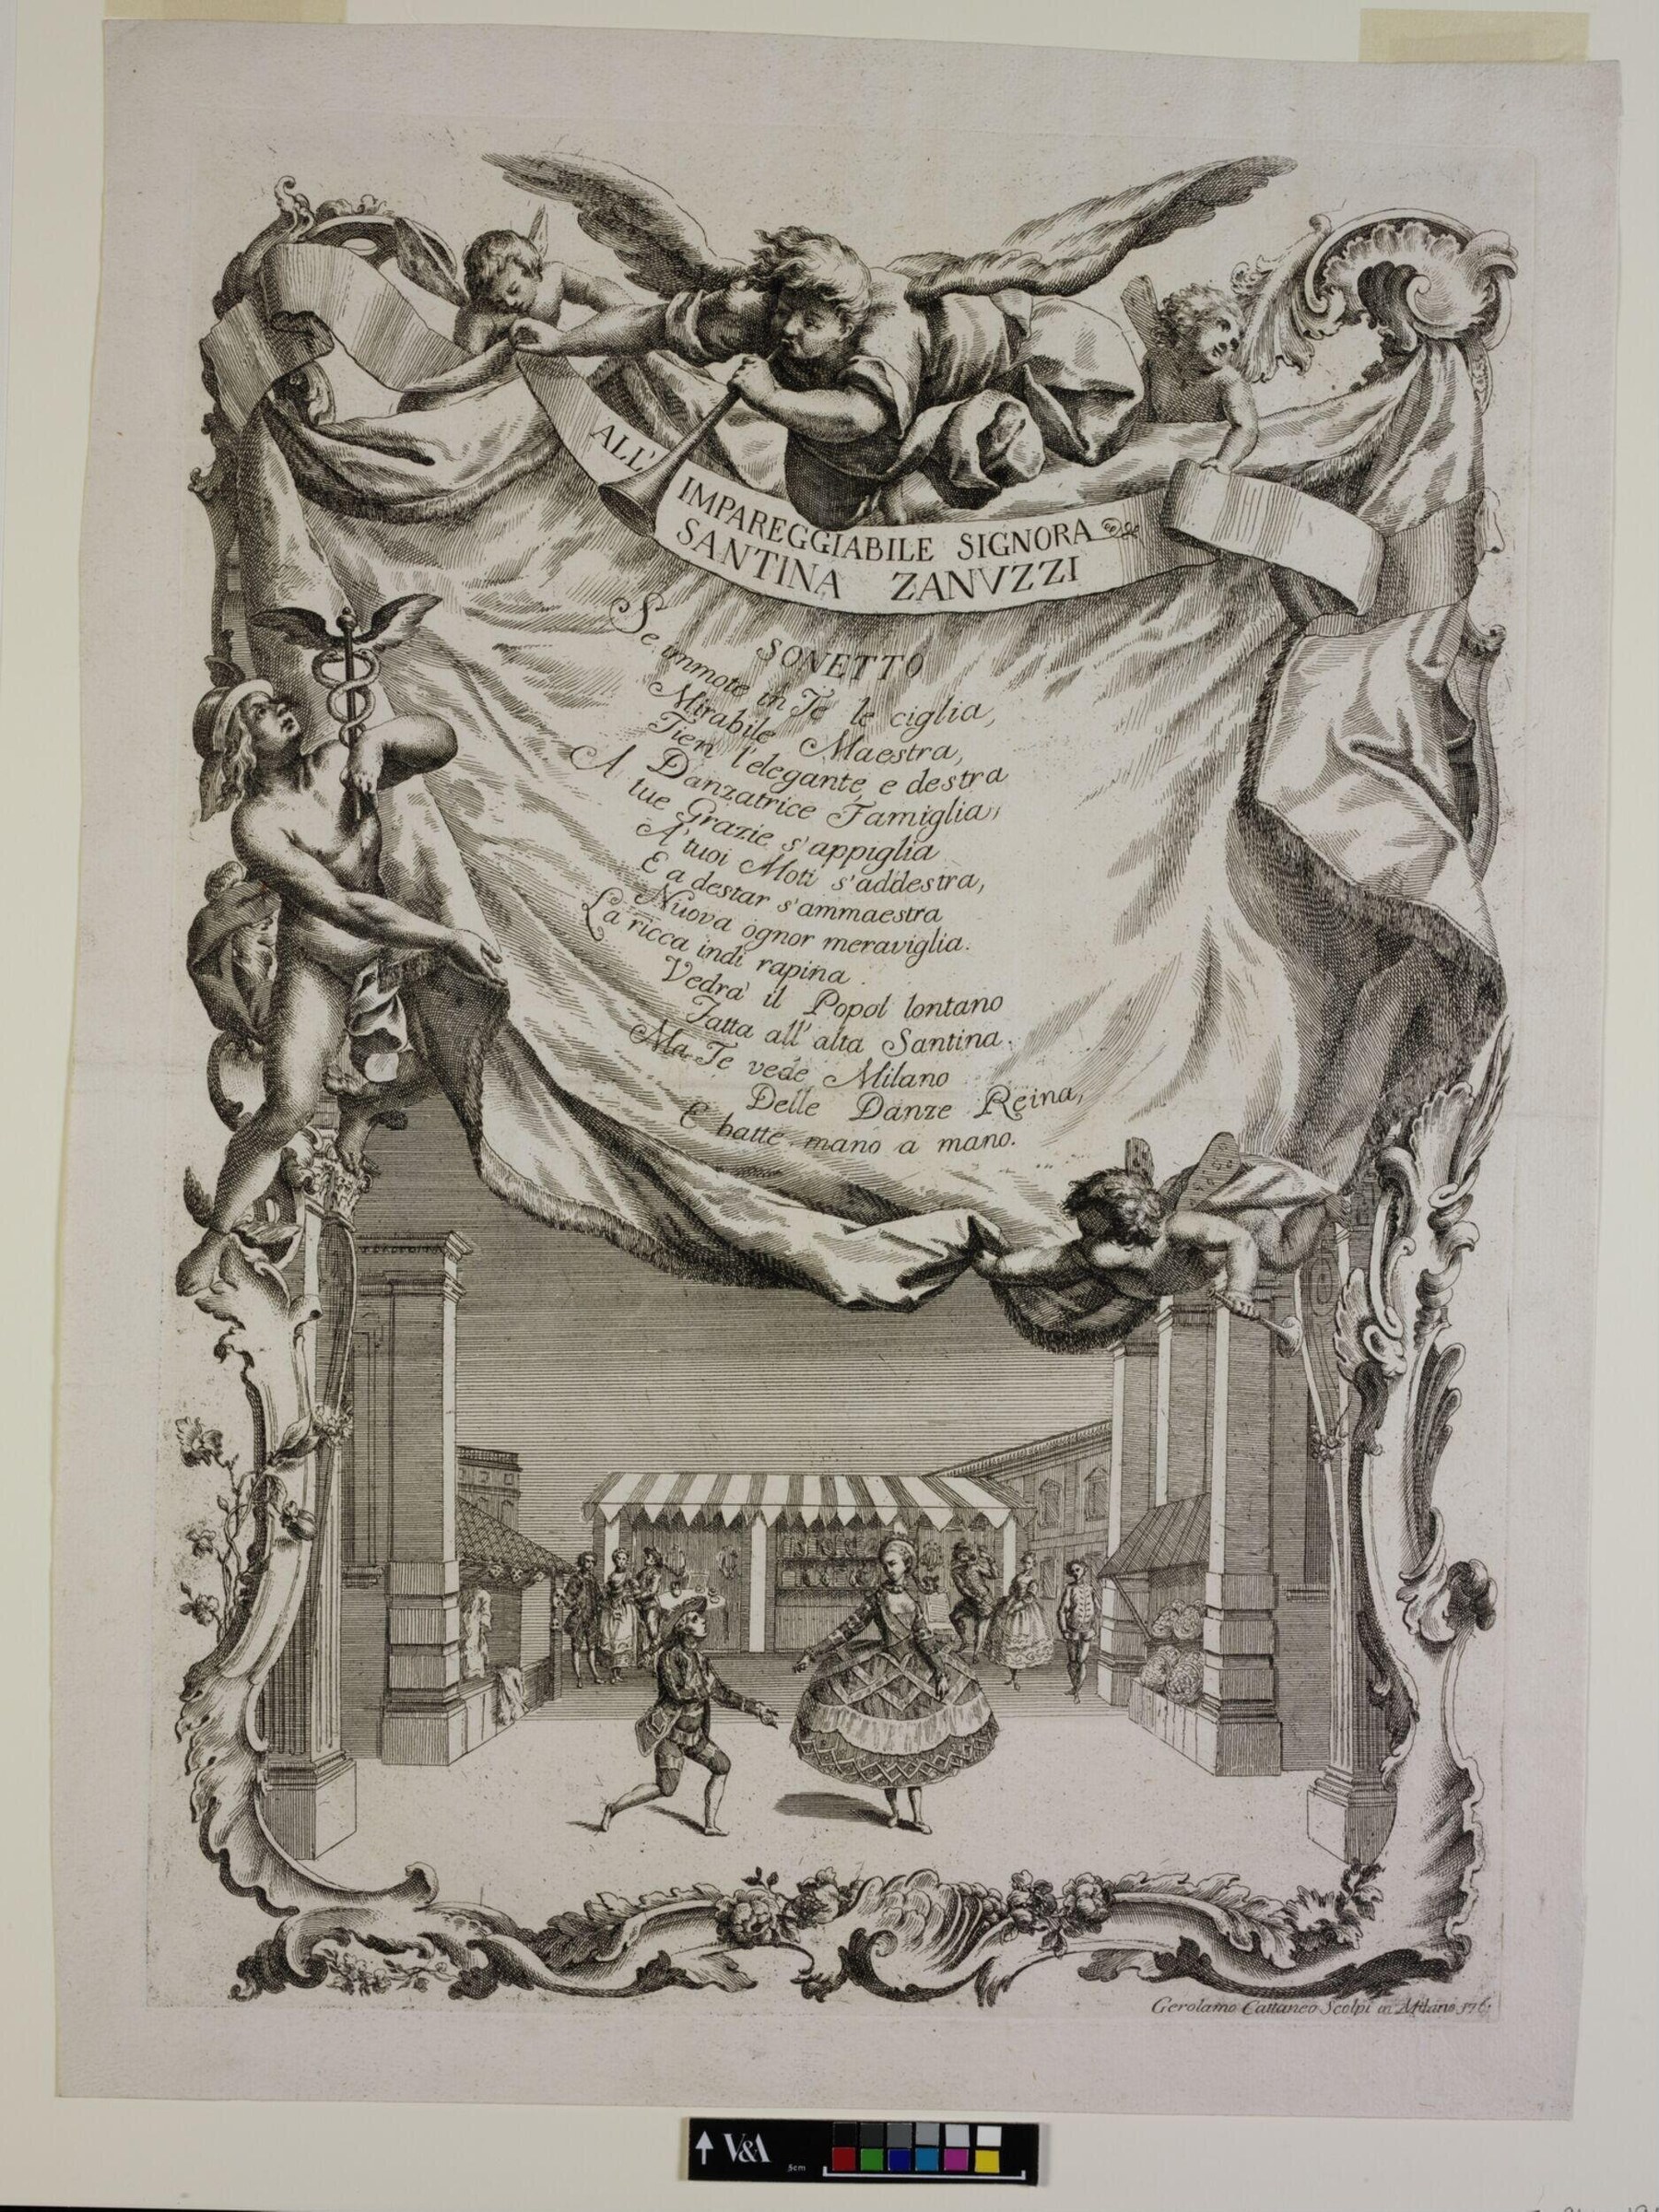 ALL'
IMPAREGGIABILE SIGNORA
SANTINA ZANVZZI
SONETTO
Se immote in Te le ciglia,
Mirabile Maestra,
Tien l'elegante, e destra
Danzatrice Famiglia,
A tue Grazie s'appiglia
A' tuoi Moti s'addestra,
E a destar s'ammaestra
Nuova ognor meraviglia.
La ricca indi rapina
Vedrà il Popol lontano
Fatta all'alta Santina.
Ma Te vede Milano
Delle Danze Reina,
E batte mano a mano.
Gerolamo Cattaneo Scolpi in Milano
V&A
5cm